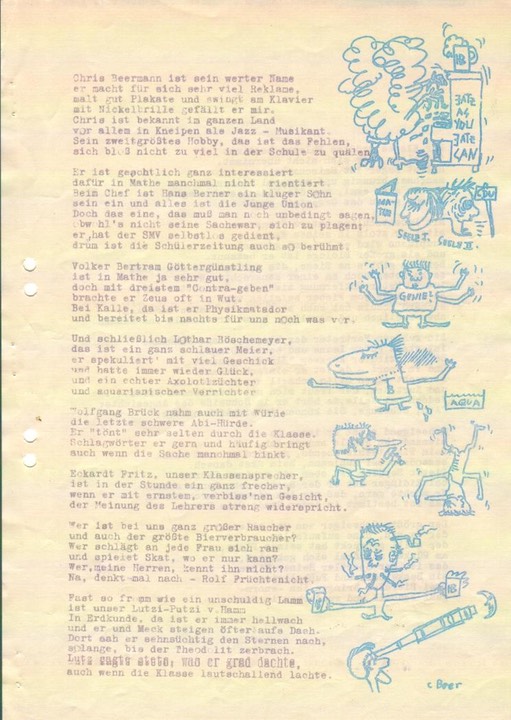 Chris Beermann ist sein werter Name
er macht für sich sehr viel Reklame,
malt gut Plakate und swingt am Klavier
mit Nickelbrille gefällt er mir.
Chris ist bekannt in ganzen Land
vor allem in Kneipen als Jazz - Musikant.
Sein zweitgrößtes Hobby, das ist das Fehlen,
sich bloß nicht zu viel in der Schule zu quälen
Er ist geschtlich ganz interessiert
dafür in Mathe manchmal nicht rientiert
Beim Chef ist Hans Berner ein kluger Sohn
sein ein und alles ist die Junge Union.
Doch das eine, das muß man noch unbedingt sagen,
bw hl's nicht seine Sachewar, sich zu plagen;
er hat der SMV selbstlos gedient,
drum ist die Schülerzeitung auch so berühmt.
Volker Bertram Göttergünstling
ist in Mathe ja sehr gut,
doch mit dreistem "Contra-geben"
brachte er Zeus oft in Wut.
Bei Kalle, da ist er Physikmatador
und bereitet bis nachts für uns noch was vor.
Und schließlich Lothar Böschemeyer,
das ist ein ganz schlauer Meier,
er spekuliert' mit viel Geschick
und hatte immer wieder Glück,
und ein echter Axolotlzüchter
und aquarianischer Verrichter
Wolfgang Brück nahm auch mit Würde
die letzte schwere Abi-Hürde.
Er "tönt" sehr selten durch die Klasse.
Schlagwörter er gern und häufig bringt
auch wenn die Sache manchmal hinkt.
Eckardt Fritz, unser Klassensprecher,
ist in der Stunde ein ganz frecher,
wenn er mit ernstem, verbiss'nen Gesicht,
der Meinung des Lehrers streng widerspricht.
Wer ist bei uns ganz großer Raucher
und auch der größte Bierverbraucher?
Wer schlägt an jede Frau sich ran
und spielet Skat, wo er nur kann?
Wer, meine Herren, kennt ihn nicht?
Na, denkt mal nach - Rolf Früchtenicht.
Fast so fromm wie ein unschuldig Lamm
ist unser Lutzi-Putzi v.Hamm
In Erdkunde, da ist er immer hellwach
und er und Meck steigen öfter aufs Dach.
Dort sah er sehnsüchtig den Sternen nach,
solange, bis der Theodlit zerbrach.
Lutz sagte stets, was er grad dachte,
auch wenn die Klasse lautschallend lachte.
JATZ
AS
YOU
JATZ
CAN
SEELE I.
SEELE II.
CDU
GENIE!
AQUA
c Beer